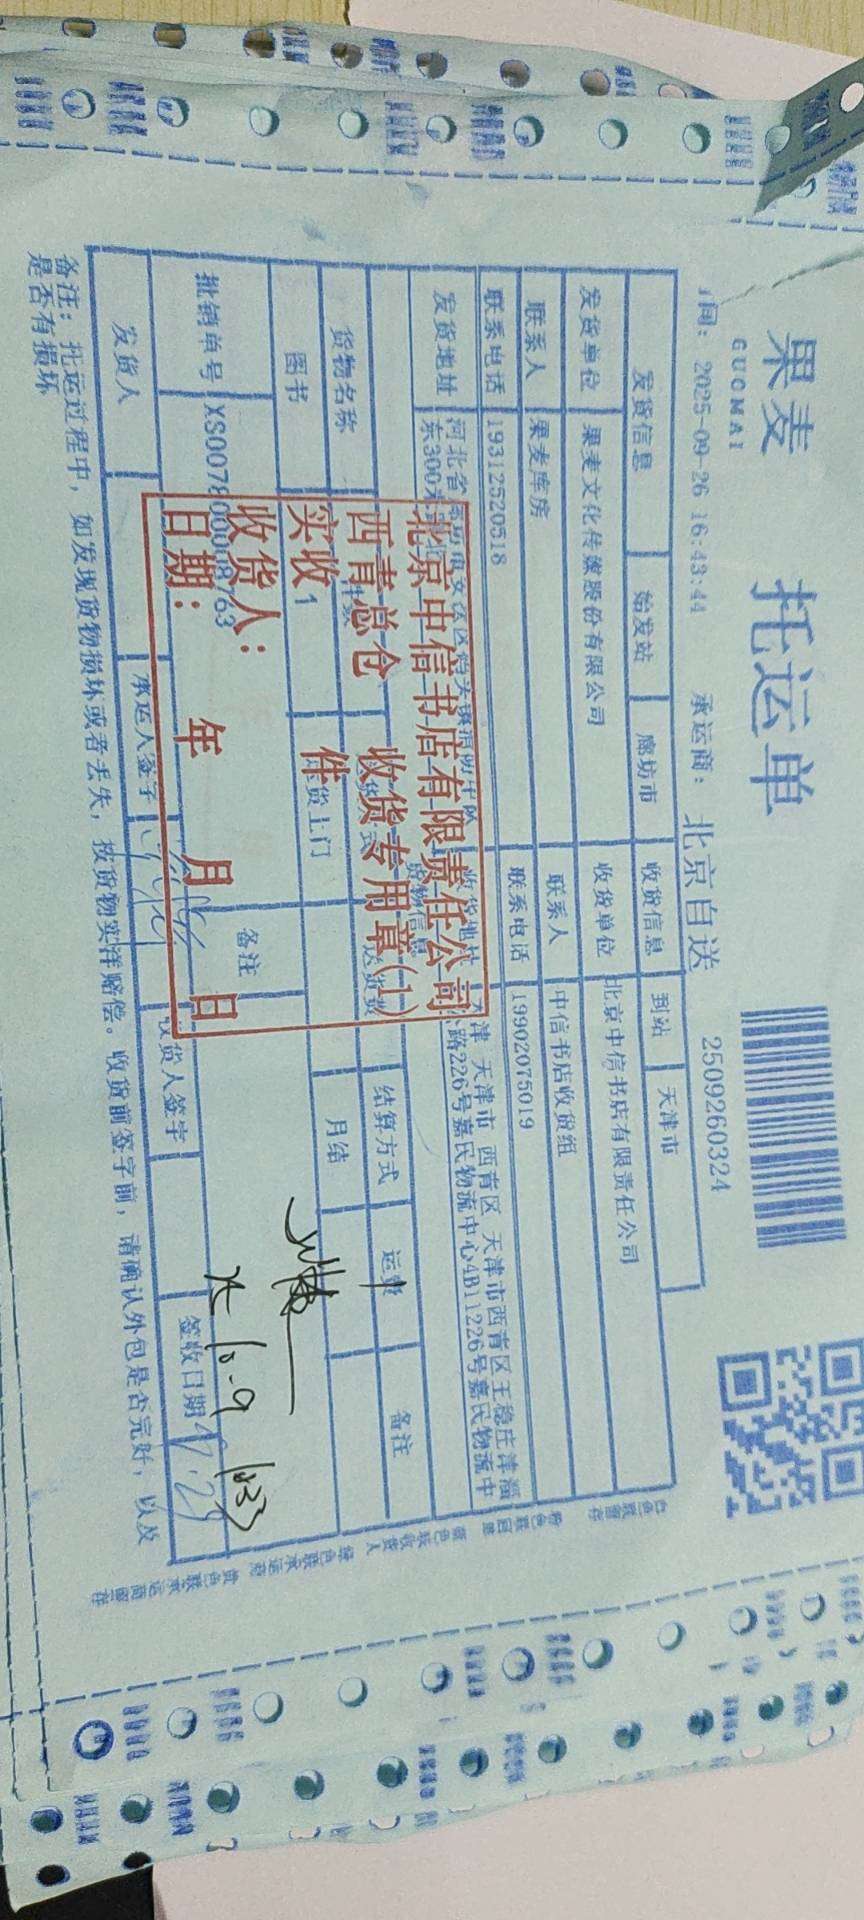 果麦
GUOMAI
托运单
间: 2025-09-26 16:43:44 承运商: 北京自送 2509260324
发货信息 始发站 廊坊市 收货信息 到站 天津市
发货单位 果麦文化传媒股份有限公司 收货单位 北京中信书店有限责任公司
联系人 果麦库房 联系人 中信书店收货组
联系电话 19312520518 联系电话 19902075019
发货地址 河北省 东300 收货地址 天津 天津市 西青区 天津市西青区王稳庄津淄
公路226号嘉民物流中心4B11226号嘉民物流中
货物信息
货物名称 件数 送货费 结算方式 运费 备注
图书 1 送货上门 月结
批销单号 XS0078000008763 备注
发货人 承运人签字 收货人签字 签收日期
备注: 托运过程中, 如发现货物损坏或者丢失, 按货物实洋赔偿。收货前签字前, 请确认外包是否完好, 以及
是否有损坏
北京中信书店有限责任公司
西青总仓 收货专用章(1)
实收 件
收货人:
日期: 年 月 日